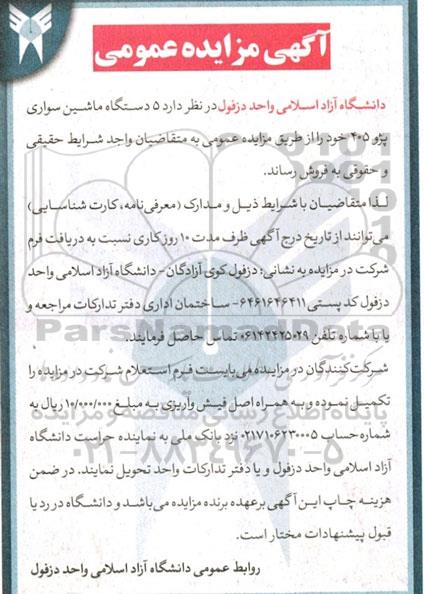 آگهی مزایده عمومی
دانشگاه آزاد اسلامی واحد دزفول در نظر دارد ۵ دستگاه ماشین سواری
پژو ۴۰۵ خود را از طریق مزایده عمومی به متقاضیان واجد شرایط حقیقی
و حقوقی به فروش رساند.
لذا متقاضیان با شرایط ذیل و مدارک (معرفی‌نامه، کارت شناسایی)
می‌توانند از تاریخ درج آگهی ظرف مدت ۱۰ روز کاری نسبت به دریافت فرم
شرکت در مزایده به نشانی: دزفول کوی آزادگان - دانشگاه آزاد اسلامی واحد
دزفول کد پستی ۶۴۶۱۶۴۶۴۱۱- ساختمان اداری دفتر تدارکات مراجعه و
یا با شماره تلفن ۰۶۱۴۲۴۲۵۰۲۹ تماس حاصل فرمایند.
شرکت‌کنندگان در مزایده می‌بایست فرم استعلام شرکت در مزایده را
تکمیل نموده و به همراه اصل فیش واریزی به مبلغ ۱۰/۰۰۰/۰۰۰ ریال به
شماره حساب ۰۲۱۷۱۰۶۲۳۰۰۰۵ نزد بانک ملی به نماینده حراست دانشگاه
آزاد اسلامی واحد دزفول و یا دفتر تدارکات واحد تحویل نمایند. در ضمن
هزینه چاپ این آگهی برعهده برنده مزایده می‌باشد و دانشگاه در رد یا
قبول پیشنهادات مختار است.
روابط عمومی دانشگاه آزاد اسلامی واحد دزفول
ParsNamadData
پایگاه اطلاع رسانی مناقصه و مزایده
۰۲۱-۸۸۳۴۹۶۷۰-۵